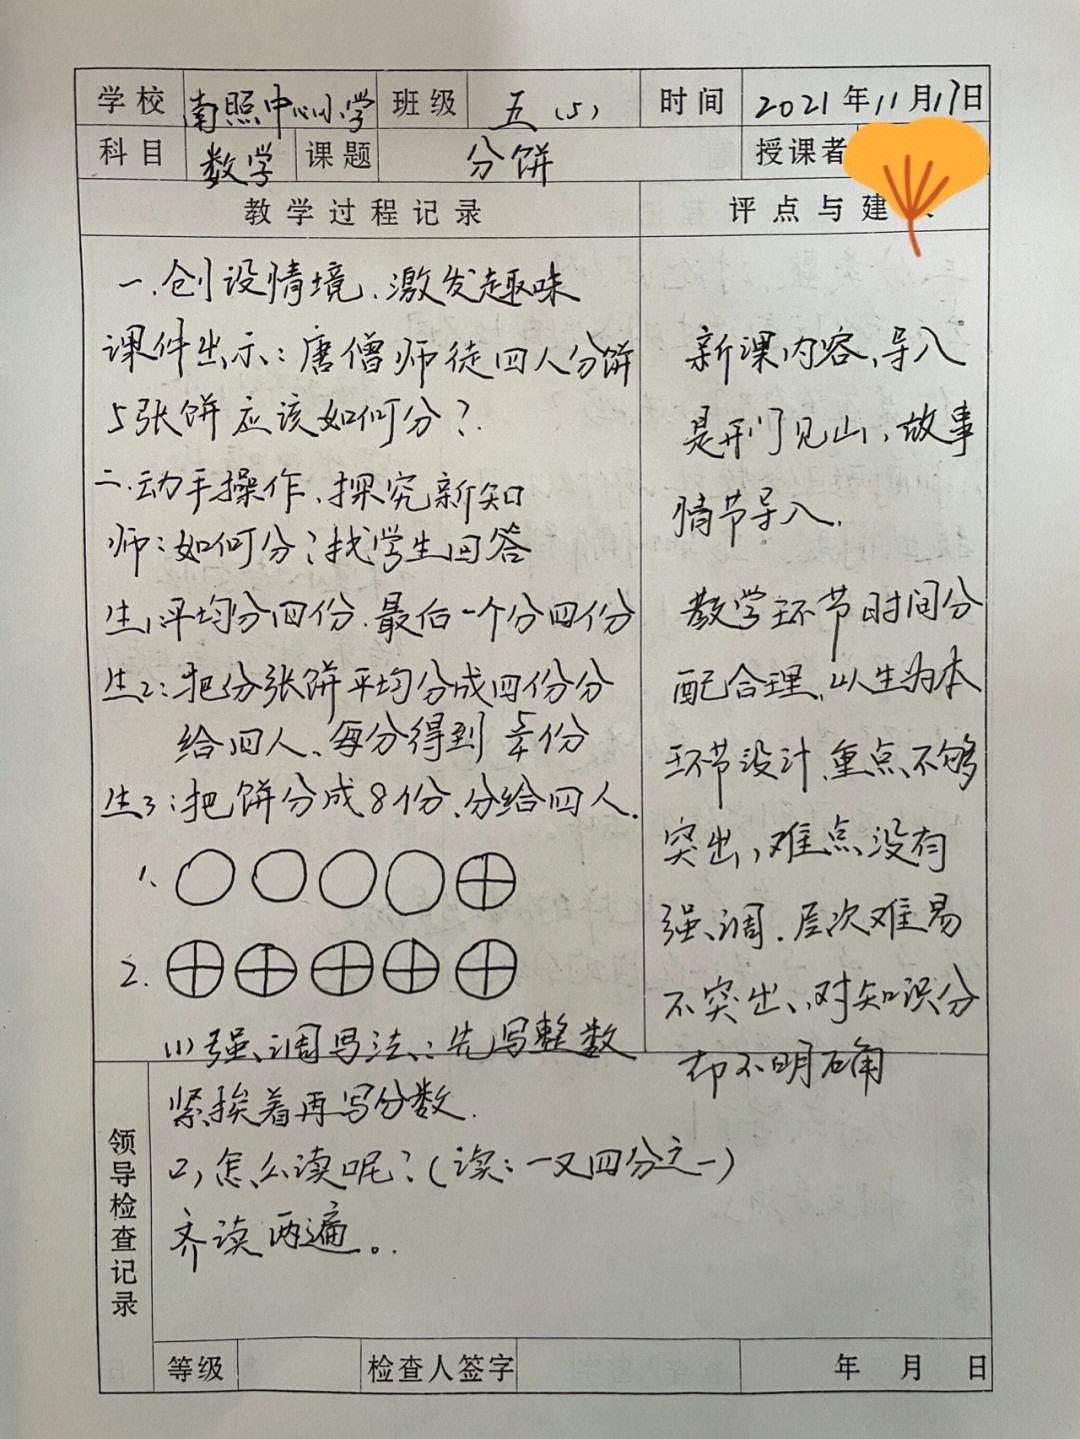 学校 南照中心小学 班级 五（5） 时间 2021年11月17日
科目 数学 课题 分饼 授课者
教学过程记录 评点与建
一、创设情境、激发趣味
课件出示：唐僧师徒四人分饼
5张饼应该如何分？
二、动手操作、探究新知
师：如何分？找学生回答
生1平均分四份、最后一个分四份
生2：把份张饼平均分成四份分
给四人、每分得到 份
生3：把饼分成8份、分给四人.
1、
2.
(1)强调写法：先写整数
紧挨着再写分数.
2，怎么读呢？（读：一又四分之一）
齐读两遍。
新课内容、导入
是开门见山、故事
情节导入.
教学环节时间分
配合理、以生为本
环节设计、重点不够
突出，难点没有
强调.层次难易
不突出、对知识分
却不明确
领导检查记录
等级 检查人签字 年 月 日